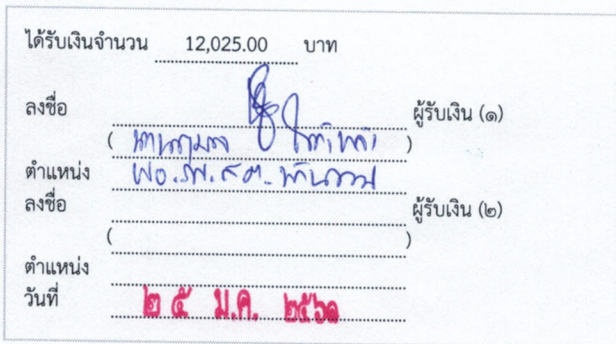 ได้รับเงินจำนวน 12,025.00 บาท
ลงชื่อ ผู้รับเงิน (๑)
( )
ตำแหน่ง ผอ.รพ.สต.
ลงชื่อ ผู้รับเงิน (๒)
( )
ตำแหน่ง
วันที่ ๒๕ ม.ค. ๒๕๖๑